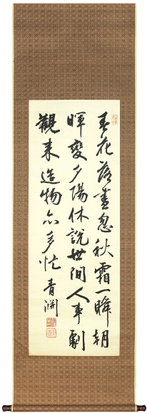 春花落盡忽秋霜一瞬朝
暉變夕陽休說世間人事劇
觀来造物亦多忙 青淵